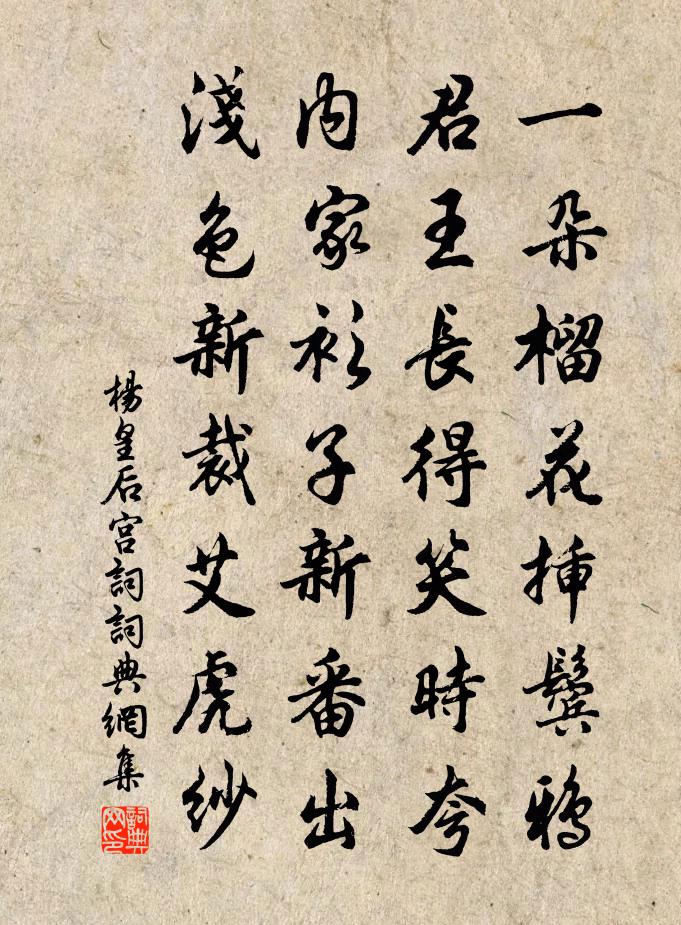 一朵榴花挿鬢鴉
君王長得笑時夸
内家衫子新番出
淺色新裁艾虎紗
楊皇后宮詞詞典網集
詞典网印